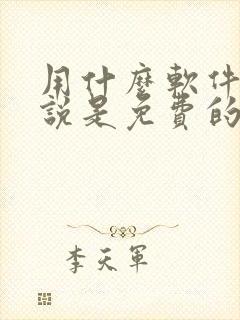 用什麼軟件
說是免費的
李天軍